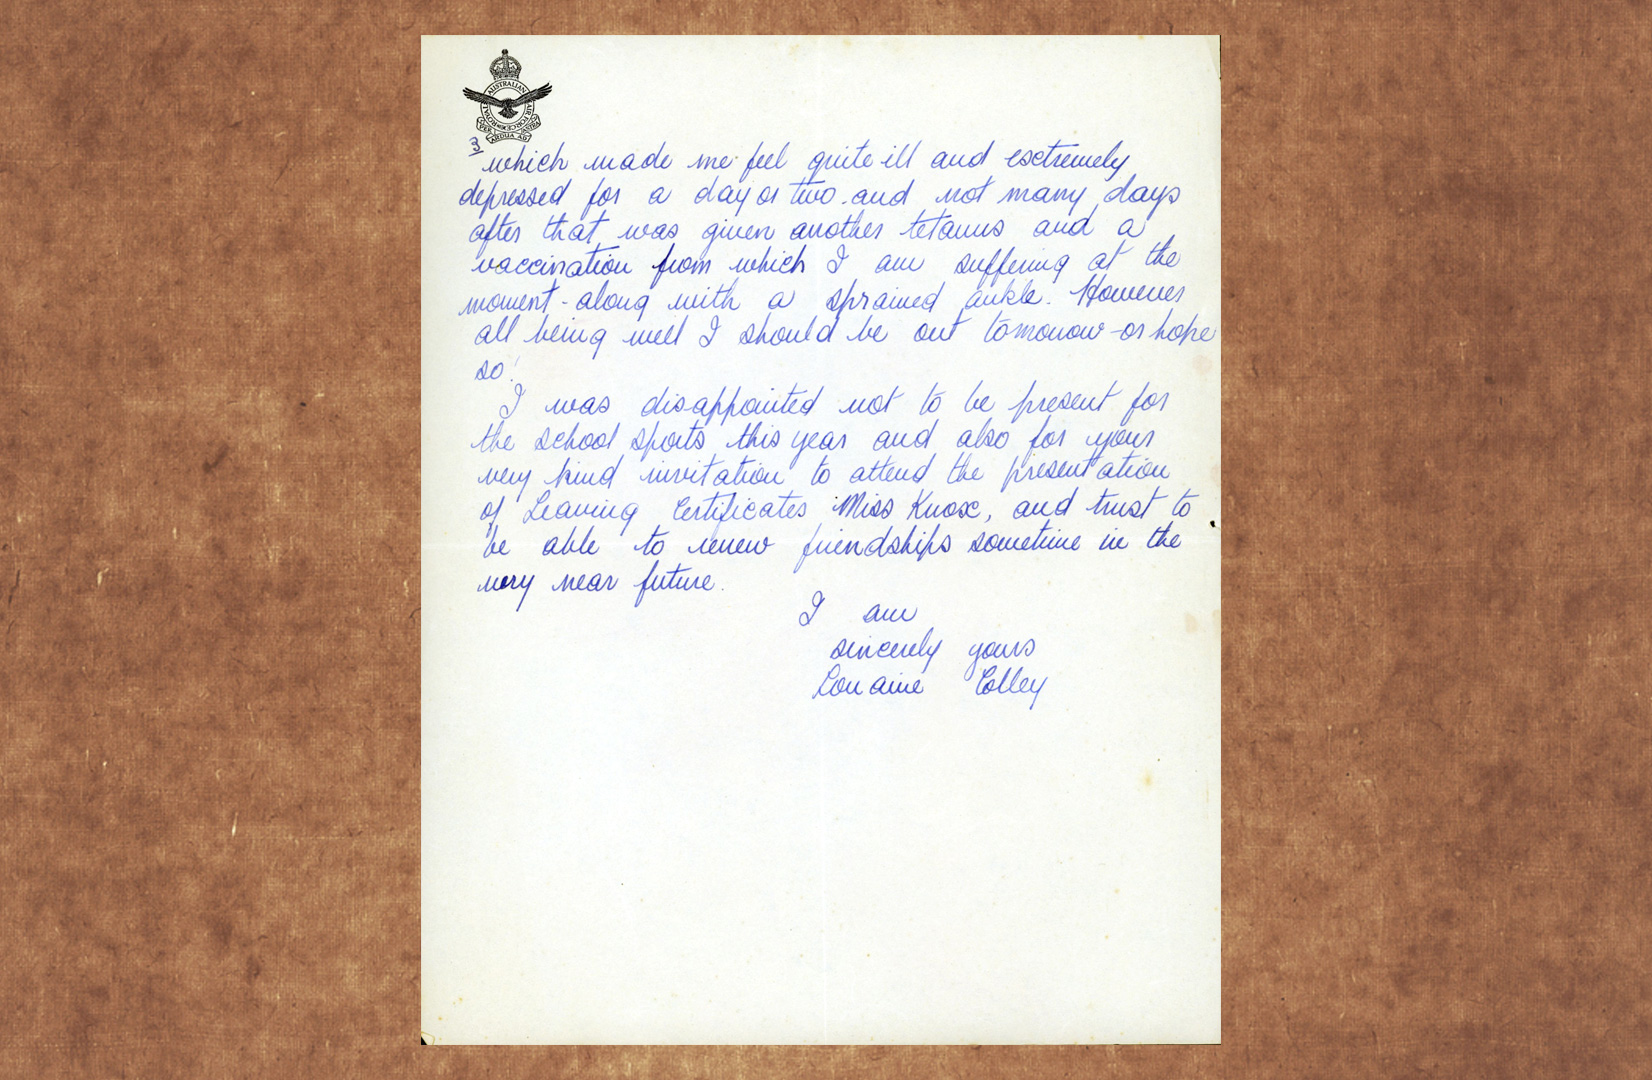 ROYAL AUSTRALIAN AIR FORCE
PER ARDUA AD ASTRA
3
which made me feel quite ill and extremely
depressed for a day or two. and not many days
after that was given another tetanus and a
vaccination from which I am suffering at the
moment - along with a sprained ankle. However
all being well I should be out tomorrow - or hope
so!
I was disappointed not to be present for
the school sports this year and also for your
very kind invitation to attend the presentation
of Leaving Certificates Miss Knox, and trust to
be able to renew friendships sometime in the
very near future.
I am
sincerely yours
Lorraine Colley